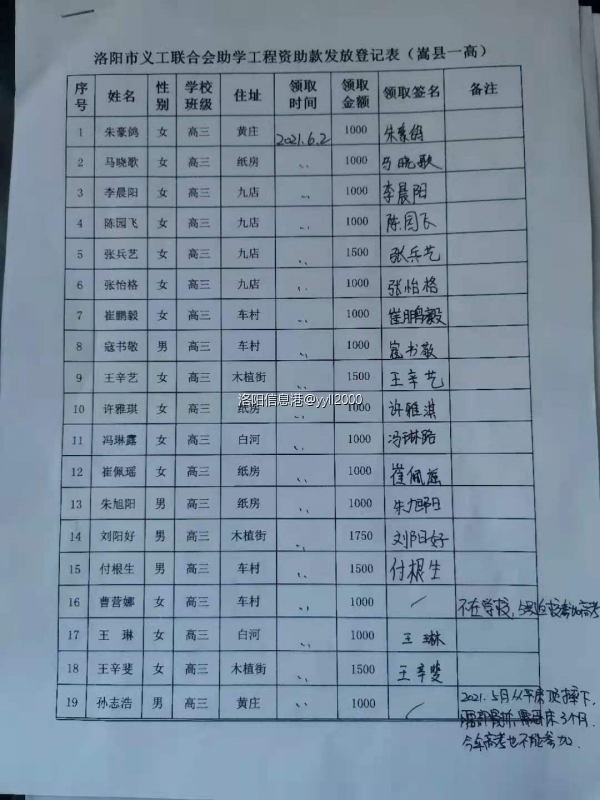 洛阳市义工联合会助学工程资助款发放登记表（嵩县一高）
序号 姓名 性别 学校班级 住址 领取时间 领取金额 领取签名 备注
1 朱豪鸽 女 高三 黄庄 2021.6.2 1000 朱豪鸽
2 马晓歌 女 高三 纸房 〃 1000 马晓歌
3 李晨阳 女 高三 九店 〃 1000 李晨阳
4 陈园飞 女 高三 九店 〃 1000 陈园飞
5 张兵艺 女 高三 九店 〃 1500 张兵艺
6 张怡格 女 高三 九店 〃 1000 张怡格
7 崔鹏毅 女 高三 车村 〃 1000 崔鹏毅
8 寇书敬 男 高三 车村 〃 1000 寇书敬
9 王辛艺 女 高三 木植街 〃 1500 王辛艺
洛阳信息港@yyll2000
10 许雅琪 女 高三 纸房 〃 1000 许雅淇
11 冯琳露 女 高三 白河 〃 1000 冯琳露
12 崔佩瑶 女 高三 纸房 〃 1000 崔佩瑶
13 朱旭阳 男 高三 纸房 〃 1000 朱旭阳
14 刘阳好 男 高三 木植街 〃 1750 刘阳好
15 付根生 男 高三 车村 〃 1500 付根生
16 曹营娜 女 高三 车村 〃 1000 / 不在学校,
17 王琳 女 高三 白河 〃 1000 王琳
18 王辛斐 女 高三 木植街 〃 1500 王辛斐
19 孙志浩 男 高三 黄庄 1000 / 2021.5月从平房顶摔下,
床3个月.
今年高考也不能参加.